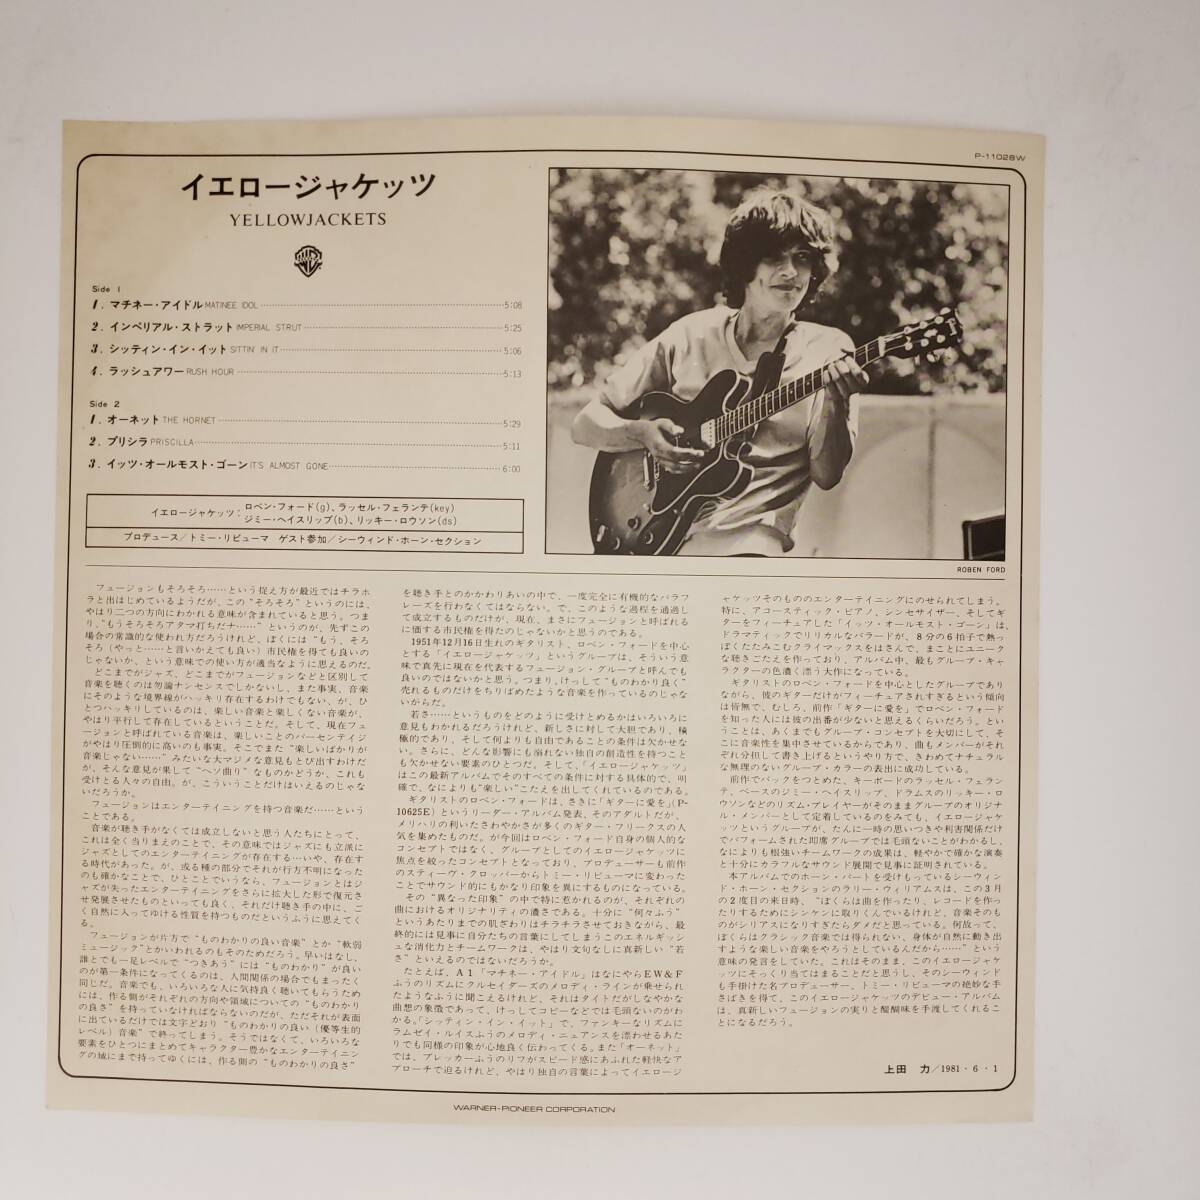 P-11028W
イエロージャケッツ
YELLOWJACKETS
Side 1
1. マチネー・アイドル MATINEE IDOL 5:08
2. インペリアル・ストラット IMPERIAL STRUT 5:25
3. シッティン・イン・イット SITTIN' IN IT 5:06
4. ラッシュアワー RUSH HOUR 5:13
Side 2
1. オーネット THE HORNET 5:29
2. プリシラ PRISCILLA 5:11
3. イッツ・オールモスト・ゴーン IT'S ALMOST GONE 6:00
イエロージャケッツ：ロベン・フォード(g)、ラッセル・フェランテ(key)
ジミー・ヘイスリップ(b)、リッキー・ロウソン(ds)
プロデュース／トミー・リピューマ ゲスト参加／シーウィンド・ホーン・セクション
ROBEN FORD
フュージョンもそろそろ……という捉え方が最近ではチラホ
ラと出はじめているようだが、この“そろそろ”というのには、
やはり二つの方向にわかれる意味が含まれていると思う。つま
り、“もうそろそろアタマ打ちだナ……”というのが、先ずこの
場合の常識的な使われ方だろうけれど、ぼくには“もう、そろ
そろ（やっと……と言いかえても良い）市民権を得ても良いの
じゃないか、という意味での使い方が適当なように思えるのだ。
どこまでがジャズ、どこまでがフュージョンなどと区別して
音楽を聴くのは勿論ナンセンスでしかないし、また事実、音楽
にそのような境界線がハッキリ存在するわけでもない、が、ひ
とつハッキリしているのは、楽しい音楽と楽しくない音楽が、
やはり平行して存在しているということだ。そして、現在フュ
ージョンと呼ばれている音楽は、楽しいことのパーセンテイジ
がやはり圧倒的に高いのも事実。そこでまた“楽しいばかりが
音楽じゃない……”みたいな大マジメな意見もとび出すわけだ
が、そんな意見が果して“ヘソ曲り”なものかどうか、これも
受けとる人々の自由。が、こういうことだけはいえるのじゃな
いだろうか。
フュージョンはエンターテイニングを持つ音楽だ……という
ことである。
音楽が聴き手がなくては成立しないと思う人たちにとって、
これは全く当りまえのことで、その意味ではジャズにも立派に
ジャズとしてのエンターテイニングが存在する…いや、存在す
る時代があった。が、或る種の部分でそれが行方不明になった
のも確かなことで、ひとことでいうなら、フュージョンとはジ
ャズが失ったエンターテイニングをさらに拡大した形で復元さ
せ発展させたものといっても良く、それだけ聴き手の中に、ご
く自然に入ってゆける性質を持つものだというふうに思えてく
る。
フュージョンが片方で“ものわかりの良い音楽”とか“軟弱
ミュージック”とかいわれるのもそのためだろう。早いはなし、
誰とでも一足レベルで“つきあう”には“ものわかり”が良い
のが第一条件になってくるのは、人間関係の場合でもまったく
同じだ。音楽でも、いろいろな人に気持良く聴いてもらうため
には、作る側がそれぞれの方向や領域についての“ものわかり
の良さ”を持っていなければならないのだが、ただそれが表面
に出ているだけでは文字どおり“ものわかりの良い（優等生的
レベル）音楽”で終ってしまう。そうではなくて、いろいろな
要素をひとつにまとめてキャラクター豊かなエンターテイニン
グの域にまで持ってゆくには、作る側の“ものわかりの良さ”
を聴き手とのかかわりあいの中で、一度完全に有機的なパラフ
レーズを行わなくてはならない。で、このような過程を通過し
て成立するものだけが、現在、まさにフュージョンと呼ばれる
に価する市民権を得たのじゃないかと思うのである。
1951年12月16日生れのギタリスト、ロベン・フォードを中心
とする「イエロージャケッツ」というグループは、そういう意
味で真先に現在を代表するフュージョン・グループと呼んでも
良いのではないかと思う。つまり、けっして“ものわかり良く”
売れるものだけをちりばめたような音楽を作っているのじゃな
いからだ。
若さ……というものをどのように受けとめるかはいろいろに
意見もわかれるだろうけれど、新しさに対して大胆であり、積
極的であり、そして何よりも自由であることの条件は欠かせな
い。さらに、どんな影響にも溺れない独自の創造性を持つこと
も欠かせない要素のひとつだ。そして、「イエロージャケッツ」
はこの最新アルバムでそのすべての条件に対する具体的で、明
確で、なによりも“楽しい”こたえを出してくれているのである。
ギタリストのロベン・フォードは、さきに「ギターに愛を」（P-
10625E）というリーダー・アルバム発表、そのアダルトだが、
メリハリの利いたさわやかさが多くのギター・フリークスの人
気を集めたものだ。が今回はロベン・フォード自身の個人的な
コンセプトではなく、グループとしてのイエロージャケッツに
焦点を絞ったコンセプトとなっており、プロデューサーも前作
のスティーヴ・クロッパーからトミー・リピューマに変わった
ことでサウンド的にもかなり印象を異にするものになっている。
その“異なった印象”の中で特に惹かれるのが、それぞれの
曲におけるオリジナリティの濃さである。十分に“何々ふう”
というあたりまでの肌ざわりはチラチラさせておきながら、最
終的には見事に自分たちの言葉にしてしまうこのエネルギッシ
ュな消化力とチームワークは、やはり文句なしに真新しい“若
さ”といえるのではないだろうか。
たとえば、A1「マチネー・アイドル」はなにやらEW&F
ふうのリズムにクルセイダーズのメロディ・ラインが乗せられ
たようなふうに聞こえるけれど、それはタイトだがしなやかな
曲想の象徴であって、けっしてコピーなどでは毛頭ないのがわ
かる。「シッティン・イン・イット」で、ファンキーなリズムに
ラムゼイ・ルイスふうのメロディ・ニュアンスを漂わせるあた
りでも同様の印象が心地良く伝わってくる。また「オーネット」
では、ブレッカーふうのリフがスピード感にあふれた軽快なア
プローチで迫るけれど、やはり独自の言葉によってイエロージ
ャケッツそのもののエンターテイニングにのせられてしまう。
特に、アコースティック・ピアノ、シンセサイザー、そしてギ
ターをフィーチュアした「イッツ・オールモスト・ゴーン」は、
ドラマティックでリリカルなバラードが、8分の6拍子で熱っ
ぽくたたみこむクライマックスをはさんで、まことにユニーク
な聴きごたえを作っており、アルバム中、最もグループ・キャ
ラクターの色濃く漂う大作になっている。
ギタリストのロベン・フォードを中心としたグループであり
ながら、彼のギターだけがフィーチュアされすぎるという傾向
は皆無で、むしろ、前作「ギターに愛を」でロベン・フォード
を知った人には彼の出番が少ないと思えるくらいだろう。とい
うことは、あくまでもグループ・コンセプトを大切にして、そ
こに音楽性を集中させているからであり、曲もメンバーがそれ
ぞれ分担して書き上げるというやり方で、きわめてナチュラル
な無理のないグループ・カラーの表出に成功している。
前作でバックをつとめた、キーボードのラッセル・フェラン
テ、ベースのジミー・ヘイスリップ、ドラムスのリッキー・ロ
ウソンなどのリズム・プレイヤーがそのままグループのオリジナ
ル・メンバーとして定着しているのをみても、イエロージャケ
ッツというグループが、たんに一時の思いつきや利害関係だけ
でパフォームされた即席グループでは毛頭ないことがわかるし、
なによりも根強いチームワークの成果は、軽やかで確かな演奏
と十分にカラフルなサウンド展開で見事に証明されている。
本アルバムでのホーン・パートを受けもっているシーウィン
ド・ホーン・セクションのラリー・ウィリアムスは、この3月
の2度目の来日時、“ぼくらは曲を作ったり、レコードを作っ
たりするためにシンケンに取りくんでいるけれど、音楽そのも
のがシリアスになりすぎたらダメだと思っている。何故って、
ぼくらはクラシック音楽では得られない、身体が自然に動き出
すような楽しい音楽をやろうとしているんだから……”という
意味の発言をしていた。これはそのまま、このイエロージャケ
ッツにそっくり当てはまることだと思うし、そのシーウィンド
も手掛けた名プロデューサー、トミー・リピューマの絶妙な手
さばきを得て、このイエロージャケッツのデビュー・アルバム
は、真新しいフュージョンの実りと醍醐味を手渡してくれるこ
とになるだろう。
上田 力／1981・6・1
WARNER-PIONEER CORPORATION